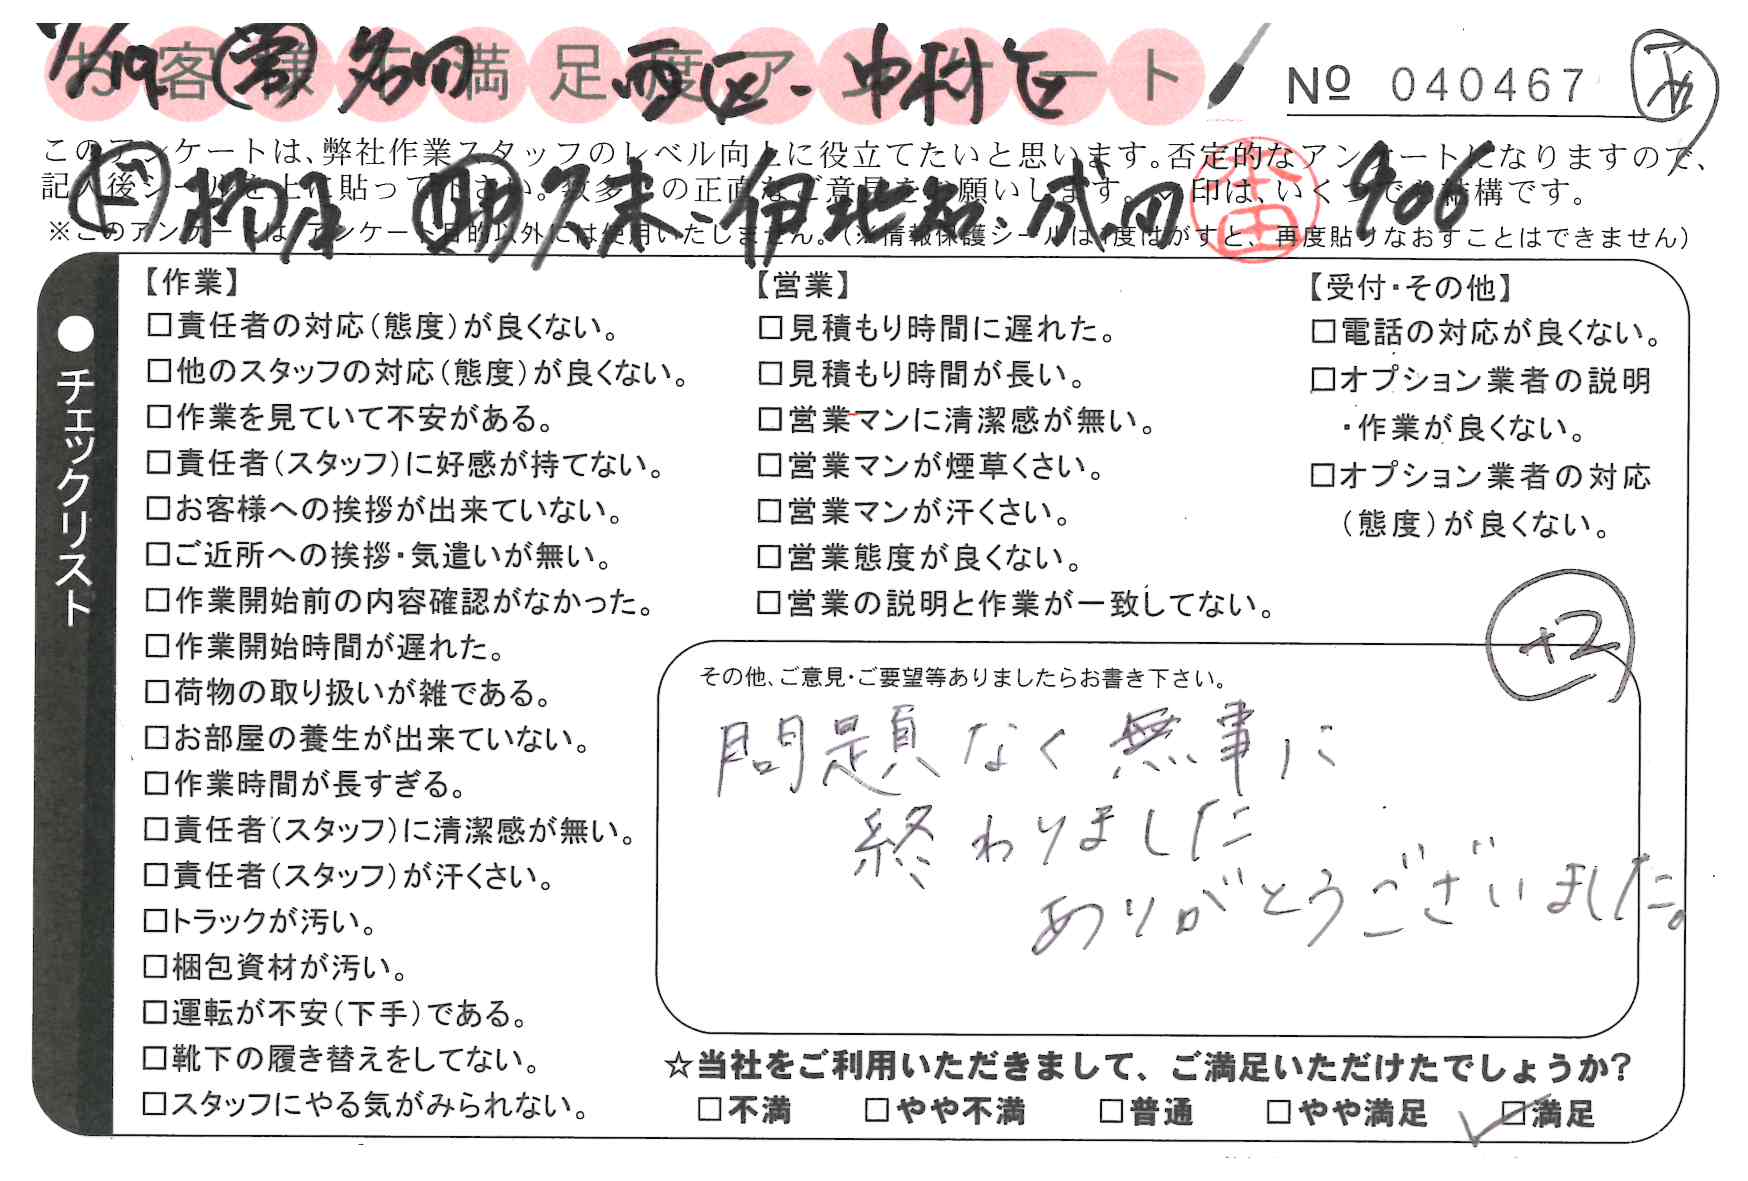 お客様の満足度アンケート
営 西区-中村区
№ 040467
このアンケートは、弊社作業スタッフのレベル向上に役立てたいと思います。否定的なアンケートになりますので、
記入後シールを上に貼って下さい。数多くの正直なご意見をお願いします。レ印は、いくつでも結構です。
助 久末・伊地知・成田 906
※このアンケートは、アンケート目的以外には使用いたしません。(※情報保護シールは1度はがすと、再度貼りなおすことはできません)
●チェックリスト
【作業】
□責任者の対応(態度)が良くない。
□他のスタッフの対応(態度)が良くない。
□作業を見ていて不安がある。
□責任者(スタッフ)に好感が持てない。
□お客様への挨拶が出来ていない。
□ご近所への挨拶・気遣いが無い。
□作業開始前の内容確認がなかった。
□作業開始時間が遅れた。
□荷物の取り扱いが雑である。
□お部屋の養生が出来ていない。
□作業時間が長すぎる。
□責任者(スタッフ)に清潔感が無い。
□責任者(スタッフ)が汗くさい。
□トラックが汚い。
□梱包資材が汚い。
□運転が不安(下手)である。
□靴下の履き替えをしてない。
□スタッフにやる気がみられない。
【営業】
□見積もり時間に遅れた。
□見積もり時間が長い。
□営業マンに清潔感が無い。
□営業マンが煙草くさい。
□営業マンが汗くさい。
□営業態度が良くない。
□営業の説明と作業が一致してない。
【受付・その他】
□電話の対応が良くない。
□オプション業者の説明
・作業が良くない。
□オプション業者の対応
(態度)が良くない。
+2
その他、ご意見・ご要望等ありましたらお書き下さい。
問題なく無事に
終わりました
ありがとうございました。
☆当社をご利用いただきまして、ご満足いただけたでしょうか?
□不満 □やや不満 □普通 □やや満足 □満足